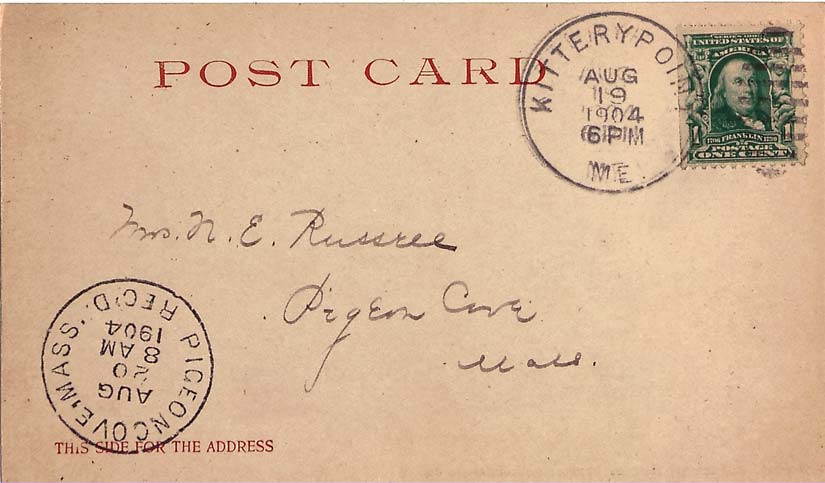 POST CARD
KITTERY POINT
AUG
19
1904
6 PM
ME.
SERIES 1902
UNITED STATES OF
AMERICA
1706 FRANKLIN 1790
POSTAGE
1 ONE CENT 1
Mrs. N. E. Russell
Pigeon Cove
Mass.
PIGEON COVE, MASS. REC'D.
AUG
20
8 AM
1904
THIS SIDE FOR THE ADDRESS